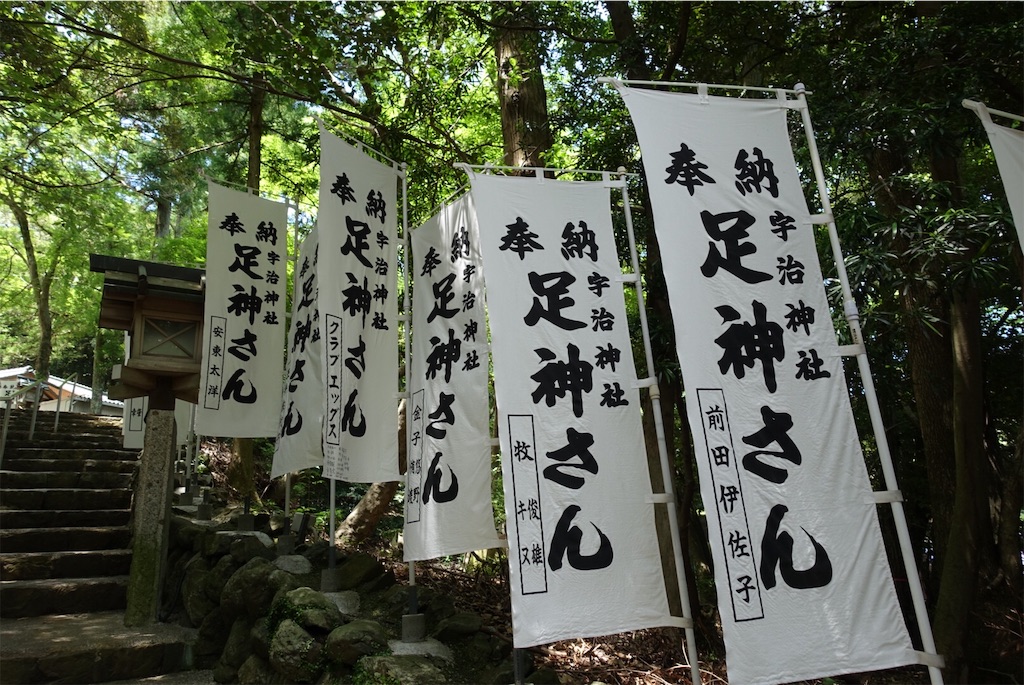 奉納
宇治神社
足神さん
前田伊佐子
奉納
宇治神社
足神さん
牧
俊雄
キヌ
奉納
宇治神社
足神さん
金子
奉納
宇治神社
足神さん
クラブエッグス
奉
足神さん
神社
奉納
宇治神社
足神さん
安東太洋